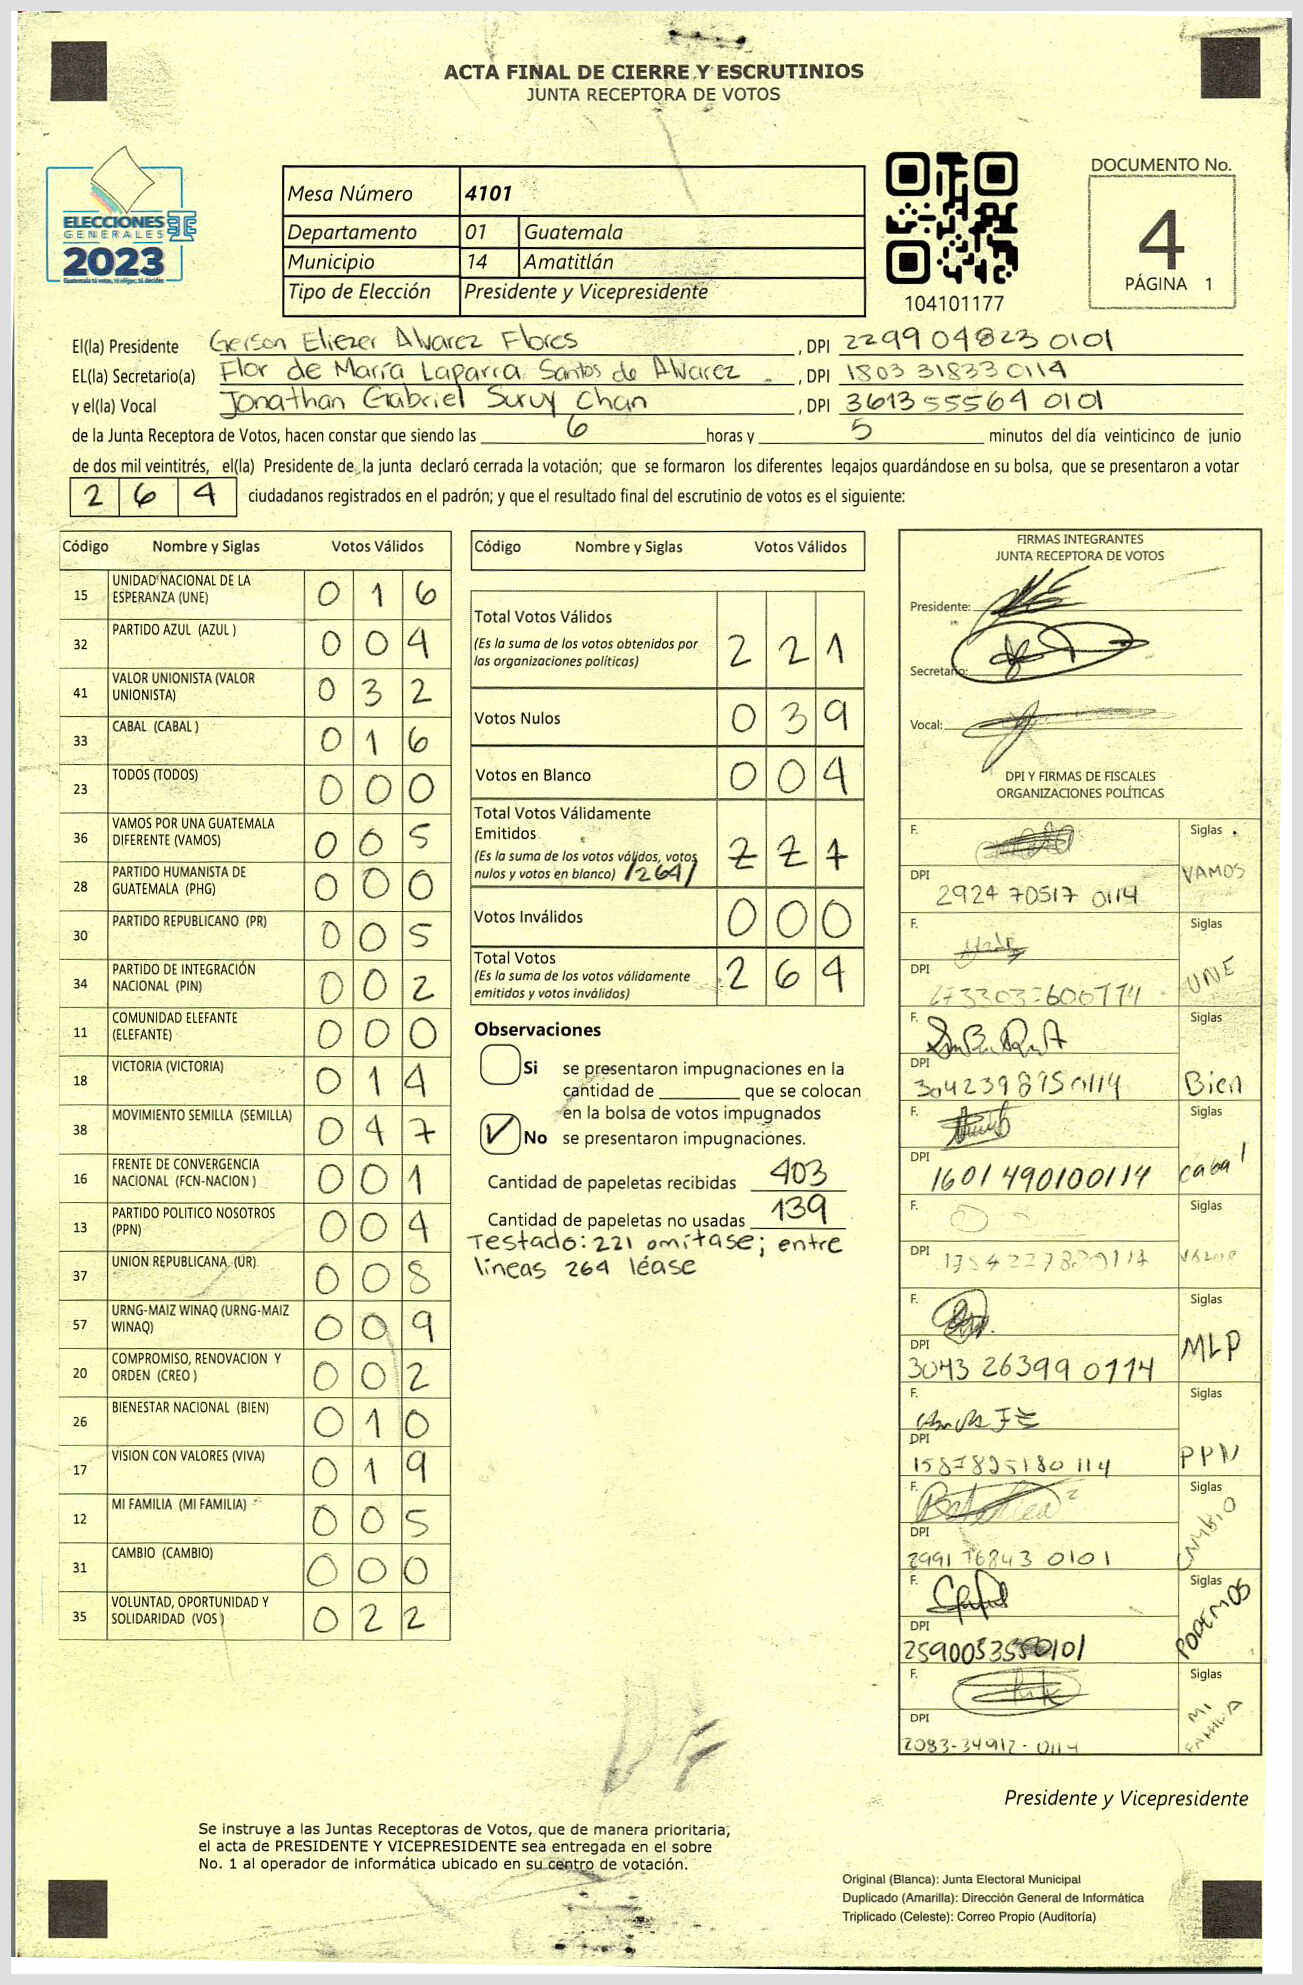 ACTA FINAL DE CIERRE Y ESCRUTINIOS
JUNTA RECEPTORA DE VOTOS
ELECCIONES
GENERALES
2023
Mesa Número 4101
Departamento 01 Guatemala
Municipio 14 Amatitlán
Tipo de Elección Presidente y Vicepresidente
104101177
DOCUMENTO No.
4
PÁGINA 1
El(la) Presidente Gerson Eliezer Alvarez Flores, DPI 2299 04823 0101
EL(la) Secretario(a) Flor de María Laparra Santos de Alvarez, DPI 1803 31833 0114
y el(la) Vocal Jonathan Gabriel Suruy Chan, DPI 3613 55564 0101
de la Junta Receptora de Votos, hacen constar que siendo las 6 horas y 5 minutos del día veinticinco de junio
de dos mil veintitrés, el(la) Presidente de la junta declaró cerrada la votación; que se formaron los diferentes legajos guardándose en su bolsa, que se presentaron a votar
264 ciudadanos registrados en el padrón; y que el resultado final del escrutinio de votos es el siguiente:
Código Nombre y Siglas Votos Válidos
15 UNIDAD NACIONAL DE LA ESPERANZA (UNE) 016
32 PARTIDO AZUL (AZUL ) 004
41 VALOR UNIONISTA (VALOR UNIONISTA) 032
33 CABAL (CABAL ) 016
23 TODOS (TODOS) 000
36 VAMOS POR UNA GUATEMALA DIFERENTE (VAMOS) 005
28 PARTIDO HUMANISTA DE GUATEMALA (PHG) 000
30 PARTIDO REPUBLICANO (PR) 005
34 PARTIDO DE INTEGRACIÓN NACIONAL (PIN) 002
11 COMUNIDAD ELEFANTE (ELEFANTE) 000
18 VICTORIA (VICTORIA) 014
38 MOVIMIENTO SEMILLA (SEMILLA) 047
16 FRENTE DE CONVERGENCIA NACIONAL (FCN-NACION ) 001
13 PARTIDO POLITICO NOSOTROS (PPN) 004
37 UNION REPUBLICANA (UR) 008
57 URNG-MAIZ WINAQ (URNG-MAIZ WINAQ) 009
20 COMPROMISO, RENOVACION Y ORDEN (CREO ) 002
26 BIENESTAR NACIONAL (BIEN) 010
17 VISION CON VALORES (VIVA) 019
12 MI FAMILIA (MI FAMILIA) 005
31 CAMBIO (CAMBIO) 000
35 VOLUNTAD, OPORTUNIDAD Y SOLIDARIDAD (VOS ) 022
Código Nombre y Siglas Votos Válidos
Total Votos Válidos 221
(Es la suma de los votos obtenidos por
las organizaciones políticas)
Votos Nulos 039
Votos en Blanco 004
Total Votos Válidamente
Emitidos 221
(Es la suma de los votos válidos, votos
nulos y votos en blanco) /264/
Votos Inválidos 000
Total Votos 264
(Es la suma de los votos válidamente
emitidos y votos inválidos)
Observaciones
Si se presentaron impugnaciones en la
cantidad de ________ que se colocan
en la bolsa de votos impugnados
No se presentaron impugnaciones.
Cantidad de papeletas recibidas 403
Cantidad de papeletas no usadas 139
Testado: 221 omítase; entre
líneas 264 léase
FIRMAS INTEGRANTES
JUNTA RECEPTORA DE VOTOS
Presidente:
Secretario:
Vocal:
DPI Y FIRMAS DE FISCALES
ORGANIZACIONES POLÍTICAS
F. Siglas
DPI VAMOS
2924 70517 0114
F. Siglas
DPI UNE
F. Siglas
DPI Bien
3042398950114
F. Siglas
DPI cabal
1601 490100114
F. Siglas
DPI VALOR
F. Siglas
DPI MLP
3043 26399 0114
F. Siglas
DPI PPN
1587825180 114
F. Siglas
DPI CAMBIO
2991 76843 0101
F. Siglas
DPI PODEMOS
F. Siglas
DPI MI FAMILIA
2083-34912-0114
Presidente y Vicepresidente
Se instruye a las Juntas Receptoras de Votos, que de manera prioritaria,
el acta de PRESIDENTE Y VICEPRESIDENTE sea entregada en el sobre
No. 1 al operador de informática ubicado en su centro de votación.
Original (Blanca): Junta Electoral Municipal
Duplicado (Amarilla): Dirección General de Informática
Triplicado (Celeste): Correo Propio (Auditoría)